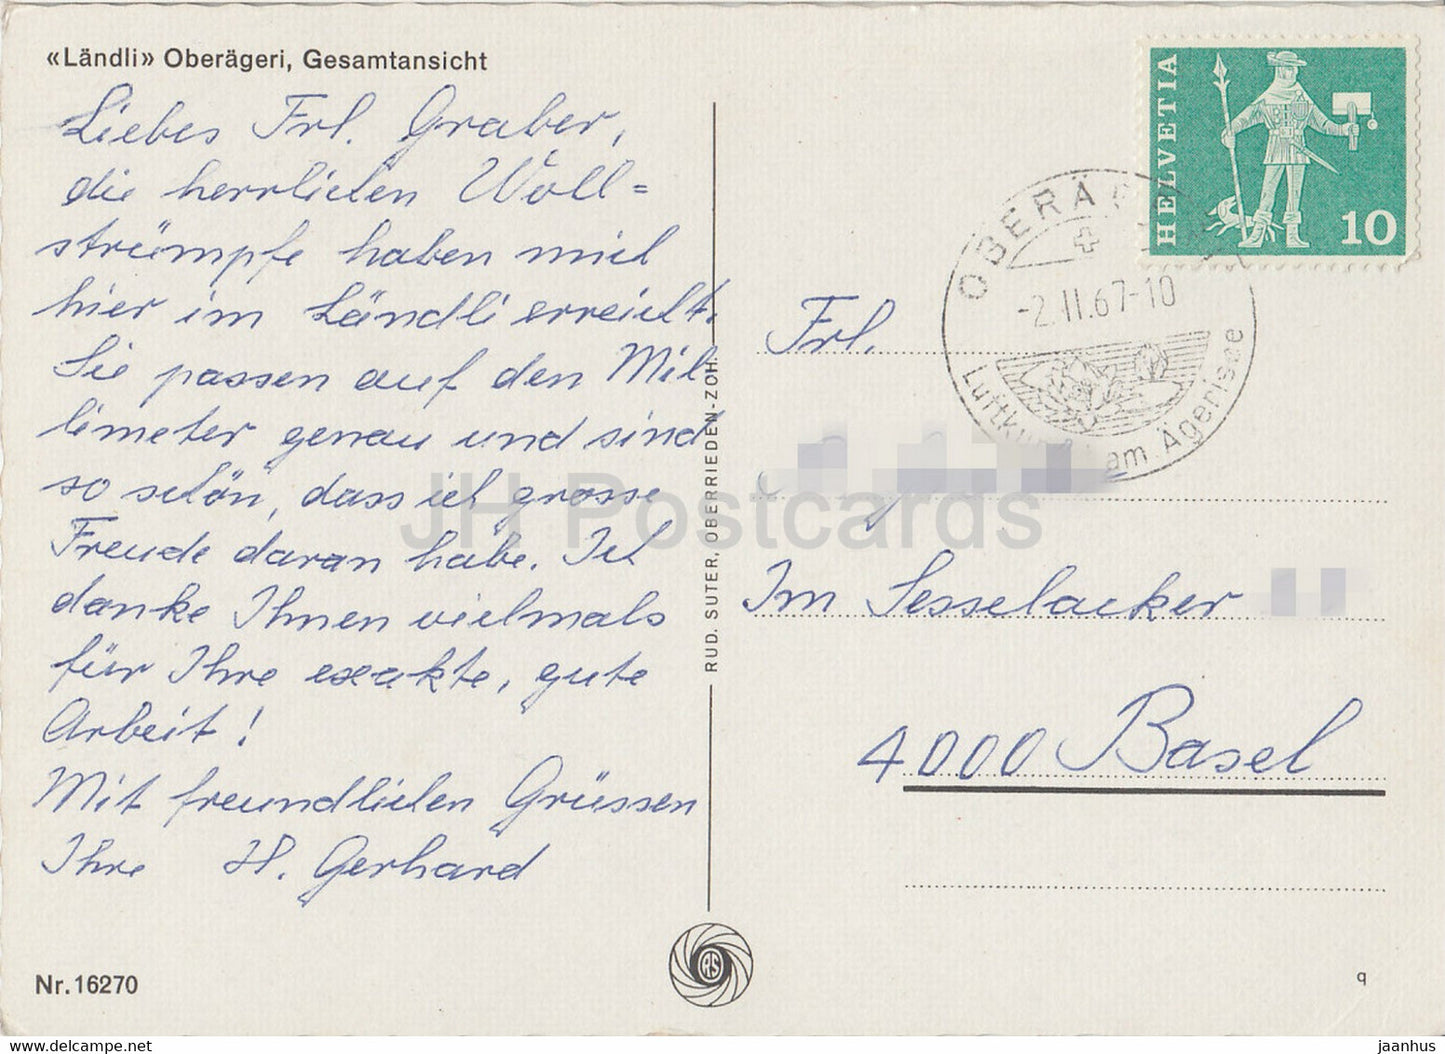 «Ländli» Oberägeri, Gesamtansicht
Liebes Frl. Graber,
die herrlichen Woll=
strümpfe haben mich
hier im Ländli erreicht.
Sie passen auf den Mil
limeter genau und sind
so schön, dass ich grosse
Freude daran habe. Ich
danke Ihnen vielmals
für Ihre exakte, gute
Arbeit!
Mit freundlichen Grüssen
Ihre H. Gerhard
Nr. 16270
RUD. SUTER, OBERRIEDEN-ZCH.
RS
HELVETIA
10
-2.II.67-10
am Ägerisee
Frl.
Im Sesselacker
4000 Basel
q
JH Postcards
jaanhus — https://jhpostcards.com